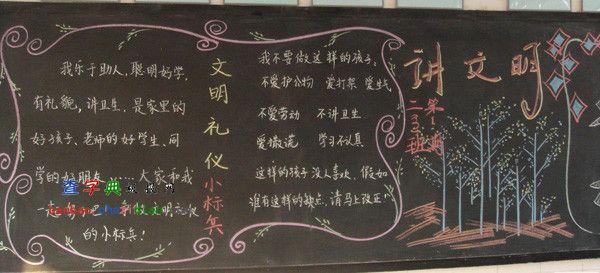 我乐于助人，聪明好学，
有礼貌，讲卫生、是家里的
好孩子、老师的好学生、同
学的好朋友……大家和我
做文明礼仪
的小标兵！
文明礼仪小标兵
我不要做这样的孩子：
不爱护公物 爱打架 爱生气
不爱劳动 不讲卫生
爱撒谎 学习不认真
这样的孩子没人喜欢，假如
谁有这样的缺点，请马上改正！
讲文明
查字典